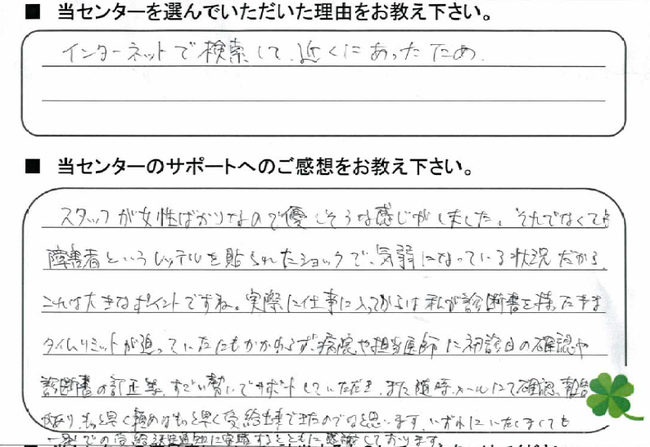 ■ 当センターを選んでいただいた理由をお教え下さい。
インターネットで検索して、近くにあったため。
■ 当センターのサポートへのご感想をお教え下さい。
スタッフが女性ばかりなので優しそうな感じがしました。それでなくても
障害者というレッテルを貼られたショックで、気弱になっている状況だから、
これは大きなポイントですね。実際に仕事に入ってからは私が診断書を持ったまま
タイムリミットが迫っていたにもかかわらず、病院や担当医師に初診日の確認や
診断書の訂正等、すごい勢いでサポートしていただき、また随時メールにて確認、報告
があり、もっと早く頼めばもっと早く受給出来てきたのでは思います。いずれにいたしましても
感謝しております。